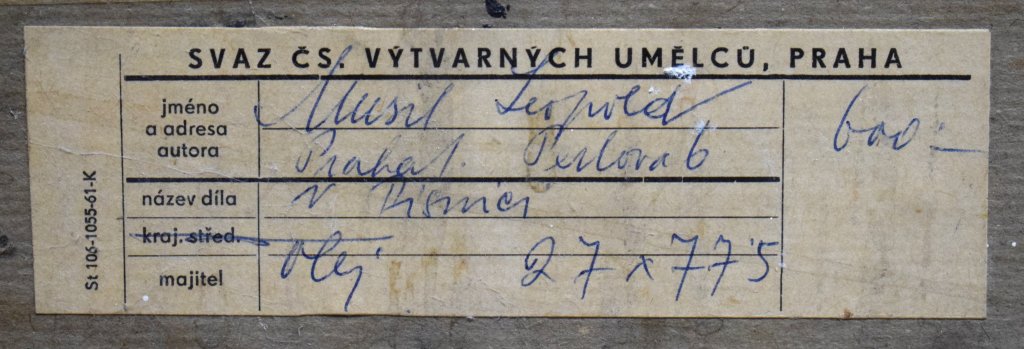 SVAZ ČS. VÝTVARNÝCH UMĚLCŮ, PRAHA
jméno a adresa autora
Musil Leopold
Praha 1. Perlova 6
600.-
název díla
V
kraj. střed.
majitel
Olej 27 x 77'5
St 106-1055-61-K